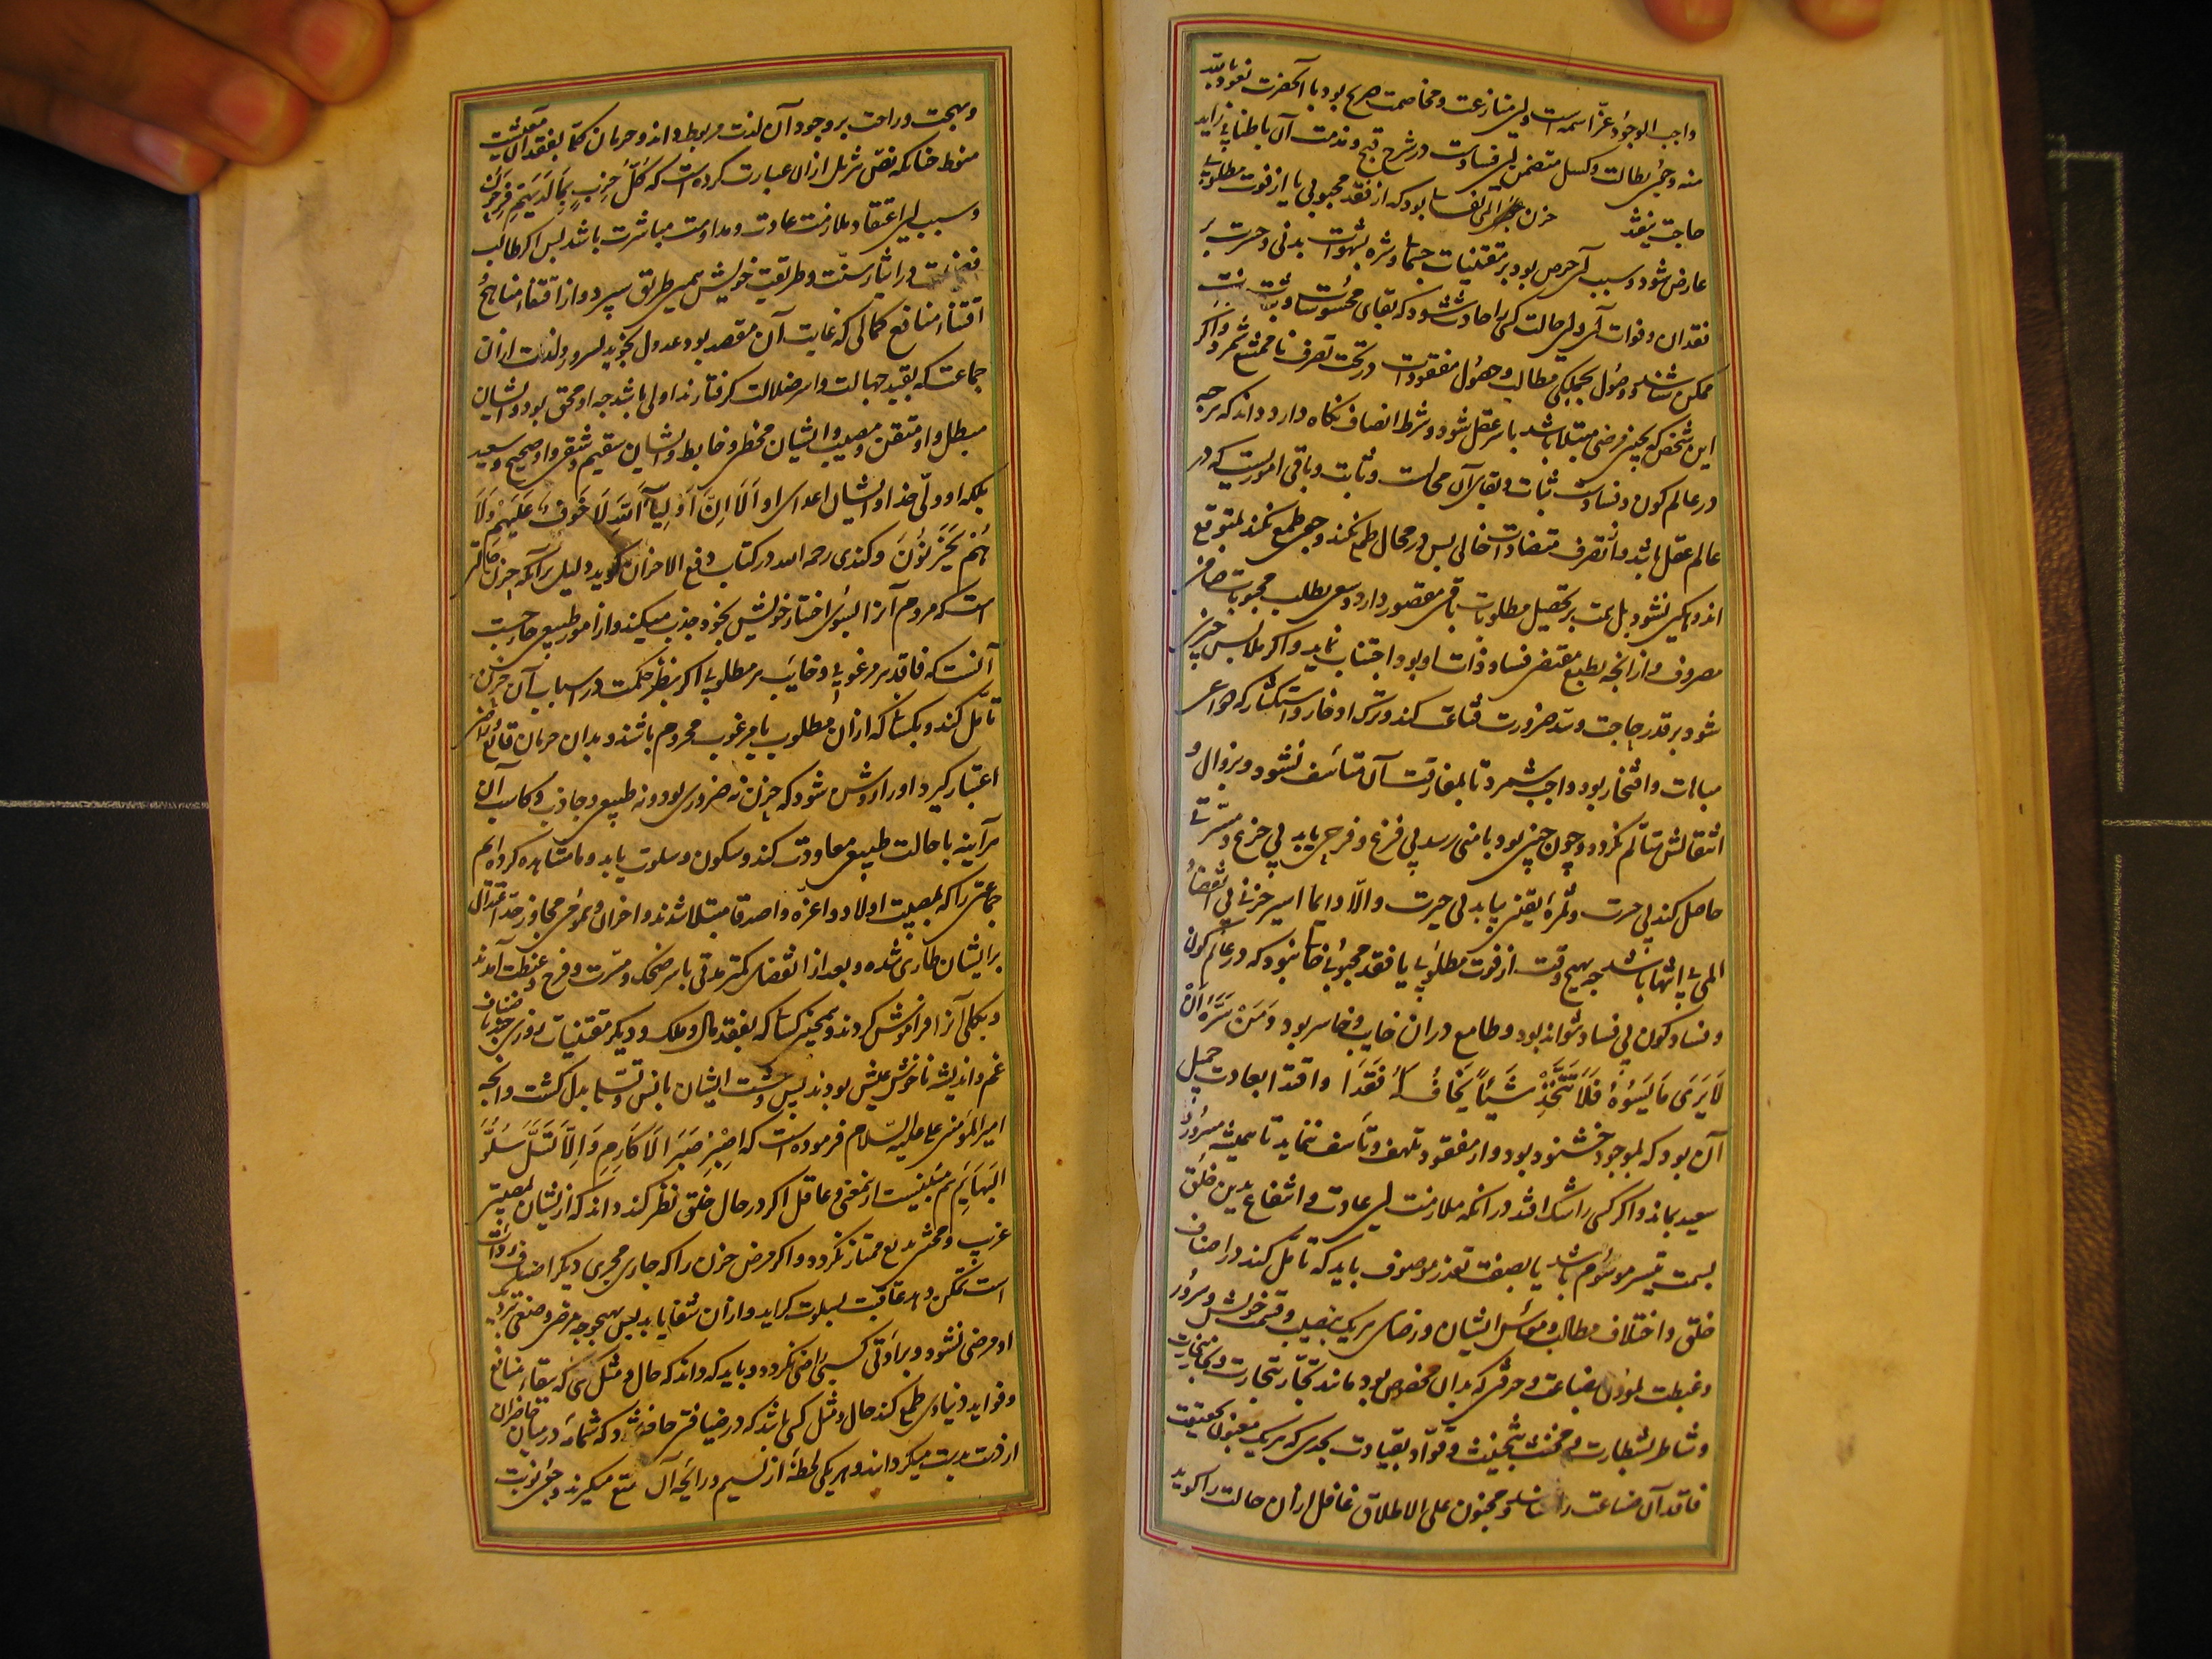 واجب الوجود عزّ اسمه است و این منازعت و مخاصمت صریح بود با آنحضرت نعوذ بالله
منه و چون بطالت و کسل متضمن این فسادست در شرح قبح و مذمت آن باطنابی زاید
حاجت نیفتد حزن المی نفسانی بود که از فقد محبوبی یا از فوت مطلوبی
عارض شود و سبب آن حرص بود بر مقتنیات جسمانی و شره بشهوات بدنی و حسرت بر
فقدان و فوات آن و این حالت کسی را حادث شود که بقای محسوسات و ثبات لذات
ممکن شناسد و وصول بجملگی مطالب و حصول مفقودات در تحت تصرف ناممتنع شمرد و اگر
این شخص که بچنین مرضی مبتلا باشد با سر عقل شود و شرط انصاف نگاه دارد داند که هرچه
در عالم کون و فسادست ثبات و بقای آن محالست و ثابت و باقی اموریست که در
عالم عقل باشد و از تصرف متضادات خالی پس در محال طمع نکند و چون طمع نکند بمتوقع
اندوهگین نشود بل همت بر تحصیل مطلوبات باقی مقصور دارد و سعی بطلب محبوبات صافی
مصروف و از آنچه بطبع مقتضی فساد ذات او بود اجتناب نماید و اگر ملابس چیزی
شود بر قدر حاجت و سد ضرورت قناعت کند و ترک ادخار و استکثار که دواعی
مباهات و افتخار بود واجب شمرد تا بمفارقت آن متاسف نشود و بزوال و
انتقالش متالم نگردد و چون چنین بود بامنی رسد بی فزع و فرحی یابد بی جزع و مسرتی
حاصل کند بی حسرت و ثمرهٔ یقین بیابد بی حیرت و الّا دایما اسیر حزنی بی انقضا و
المی بی انتها باشد چه بهیچ وقت از فوت مطلوبی یا فقد محبوبی خالی نبود که در عالم کون
و فساد کون بی فساد نتواند بود و طامع دران خایب و خاسر بود وَمَنْ سَرَّهُ اَنْ
لَا یَرَی مَا یَسُوْهُ فَلَا یَتَّخِذْ شَیْئاً یَخَافُ لَهُ فَقْدَا و اقتدا بعادت جمیل
آن بود که بموجود خشنود بود و از مفقود تلهف و تاسف ننماید تا همیشه مسرور و
سعید بماند و اگر کسی را شک افتد در آنکه ملازمت این عادت و انتفاع بدین خلق
بسمت تیسر موسوم باشد یا بصفت تعذر موصوف باید که تامل کند در اصناف
خلق و اختلاف مطالب و معایش ایشان و رضای هریک بنصیب و قسمت خویش و سرور
و غبطت نمودن بصناعت و حرفتی که بدان مخصوص بود مانند تجّار بتجارت و نجّار بنجارت
و شاطر بشطارت و مخنث بتخنیث و قوّاد بقیادت بحدی که هریک مغبون بحقیقت
فاقد آن صناعت را شناسد و مجنون علی الاطلاق غافل از آن حالت را گوید
و بهجت و راحت بر وجود آن لذت مربوط داند و حرمان کلی بفقد آن معیشت
منوط چنانکه نصّ تنزیل ازان عبارت کرده است که کُلُّ حِزْبٍ بِمَا لَدَیْهِمْ فَرِحُوْنَ
و سبب این اعتقاد ملازمت عادت و مداومت مباشرت باشد پس اگر طالب
فضیلت در ایثار سنّت و طریقت خویش همین طریق سپرد و از اقتفاء مناهج و
اقتناء منافع کمالی که غایت آن مقصد بود عدول نجوید بسرور و لذت ازان
جماعت که بقید جهالت و اسر ضلالت گرفتارند اولی باشد چه او محق بود و ایشان
مبطل و او متیقن و مصیب و ایشان مخطی و خابط و ایشان سقیم و شقی و او صحیح و سعید
بلکه او ولی خدا و ایشان اعدای او اَلَا اِنَّ اَوْلِیَآءَ اللهِ لَا خَوْفٌ عَلَیْهِمْ وَلَا
هُمْ یَحْزَنُوْنَ و کندی رحمه الله در کتاب دفع الاحزان گوید دلیل بر آنکه حزن حالتی
است که مردم آنرا بسوء اختیار خویش بخود جذب میکند و از امور طبیعی خارجست
آنست که فاقد هر مرغوبی و خایب هر مطلوبی اگر بنظر حکمت در اسباب آن حزن
تامّل کند و بکسانی که ازان مطلوب یا مرغوب محروم باشند و بدان حرمان قانع و راضی
اعتبار گیرد او را روشن شود که حزن نه ضروری بود و نه طبیعی و جاذب و کاسب آن
هرآینه با حالت طبیعی معاودت کند و سکون و سلوت یابد و ما مشاهده کرده ایم
جماعتی را که بمصیبت اولاد و اعزّه و اصدقا مبتلا شدند و احزان و هموم مجاوز حدّ اعتدال
بر ایشان طاری شده و بعد از انقضای کمتر مدتی با سر ضحک و مسرت و فرح و غبطت آمدند
و بکلی آنرا فراموش کردند و همچنین کسانی که بفقد مال و ملک و دیگر مقتنیات روزی چند باصناف
غم و اندیشه ناخوش عیش بودند پس وحشت ایشان بانس و تسلی بدل گشت و آنچه
امیر المؤمنین علی علیه السّلام فرموده است که اِصْبِرْ صَبْرَ الْاَکَارِمِ وَاِلَّا تَسَلَّ سُلُوَّ
الْبَهَایِمِ هم مبنیست از همین معنی و عاقل اگر در حال خلق نظر کند داند که از یشان بمصیبتی
غریب و محنتی بدیع ممتاز نگردد و اگر مرض حزن را که جاری مجری دیگر اصناف ردات
است تمکن دهد عاقبت بسلوت گراید و ازان شفا یابد پس بهیچ وجه مرضی وضعی نزدیک
او مرضی نشود و برداءتی کسبی راضی نگردد و باید که داند که حال و مثل کسی که ببقاء منافع
و فواید دنیاوی طمع کند حال و مثل کسی باشد که در ضیافتی حاضر شود که شمامهٔ در میان حاضران
از دست بدست میگردانند و هر یکی لحظهٔ از نسیم و رایحهٔ آن تمتع میگیرند و چون نوبت